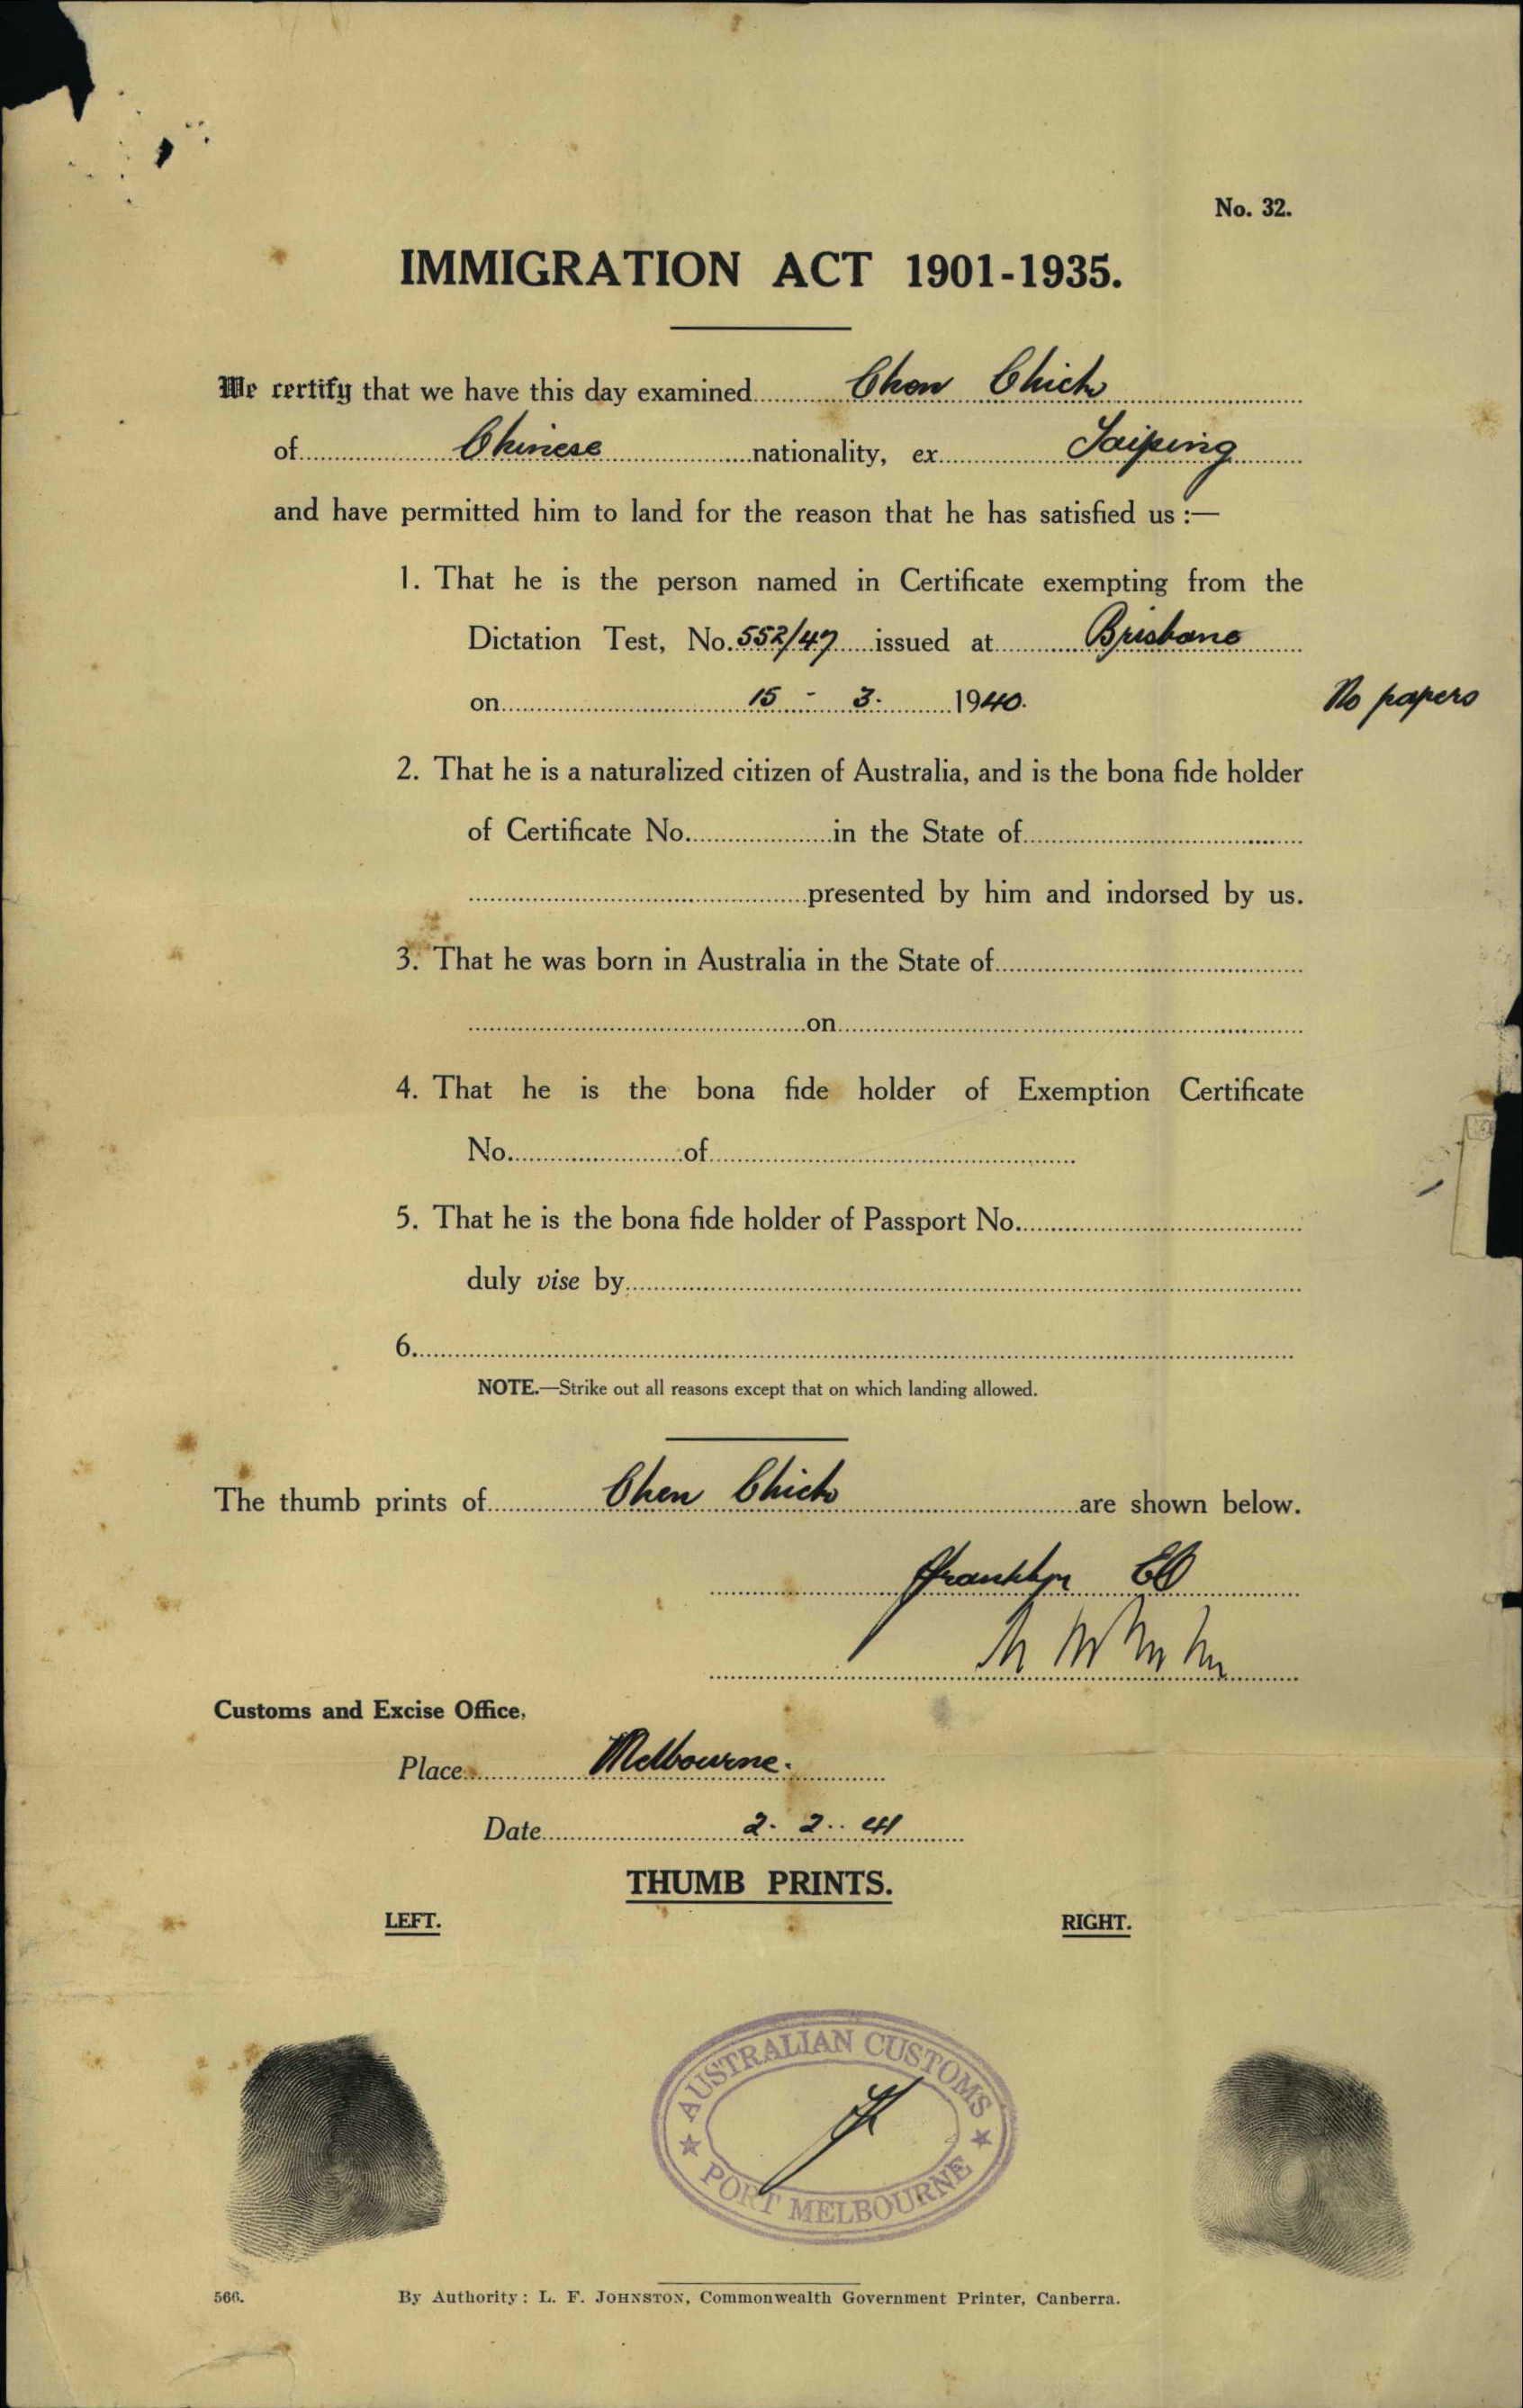 No. 32.
IMMIGRATION ACT 1901-1935.
We certify that we have this day examined Chen Chick
of Chinese nationality, ex Taiping
and have permitted him to land for the reason that he has satisfied us :—
1. That he is the person named in Certificate exempting from the
Dictation Test, No. 552/47 issued at Brisbane
on 15 - 3. 1940.
No papers
2. That he is a naturalized citizen of Australia, and is the bona fide holder
of Certificate No. in the State of
presented by him and indorsed by us.
3. That he was born in Australia in the State of
on
4. That he is the bona fide holder of Exemption Certificate
No. of
5. That he is the bona fide holder of Passport No.
duly vise by
6.
NOTE.—Strike out all reasons except that on which landing allowed.
The thumb prints of Chen Chick are shown below.
Customs and Excise Office,
Place Melbourne.
Date 2. 2. 41
THUMB PRINTS.
LEFT. RIGHT.
AUSTRALIAN CUSTOMS
PORT MELBOURNE
566. By Authority: L. F. JOHNSTON, Commonwealth Government Printer, Canberra.